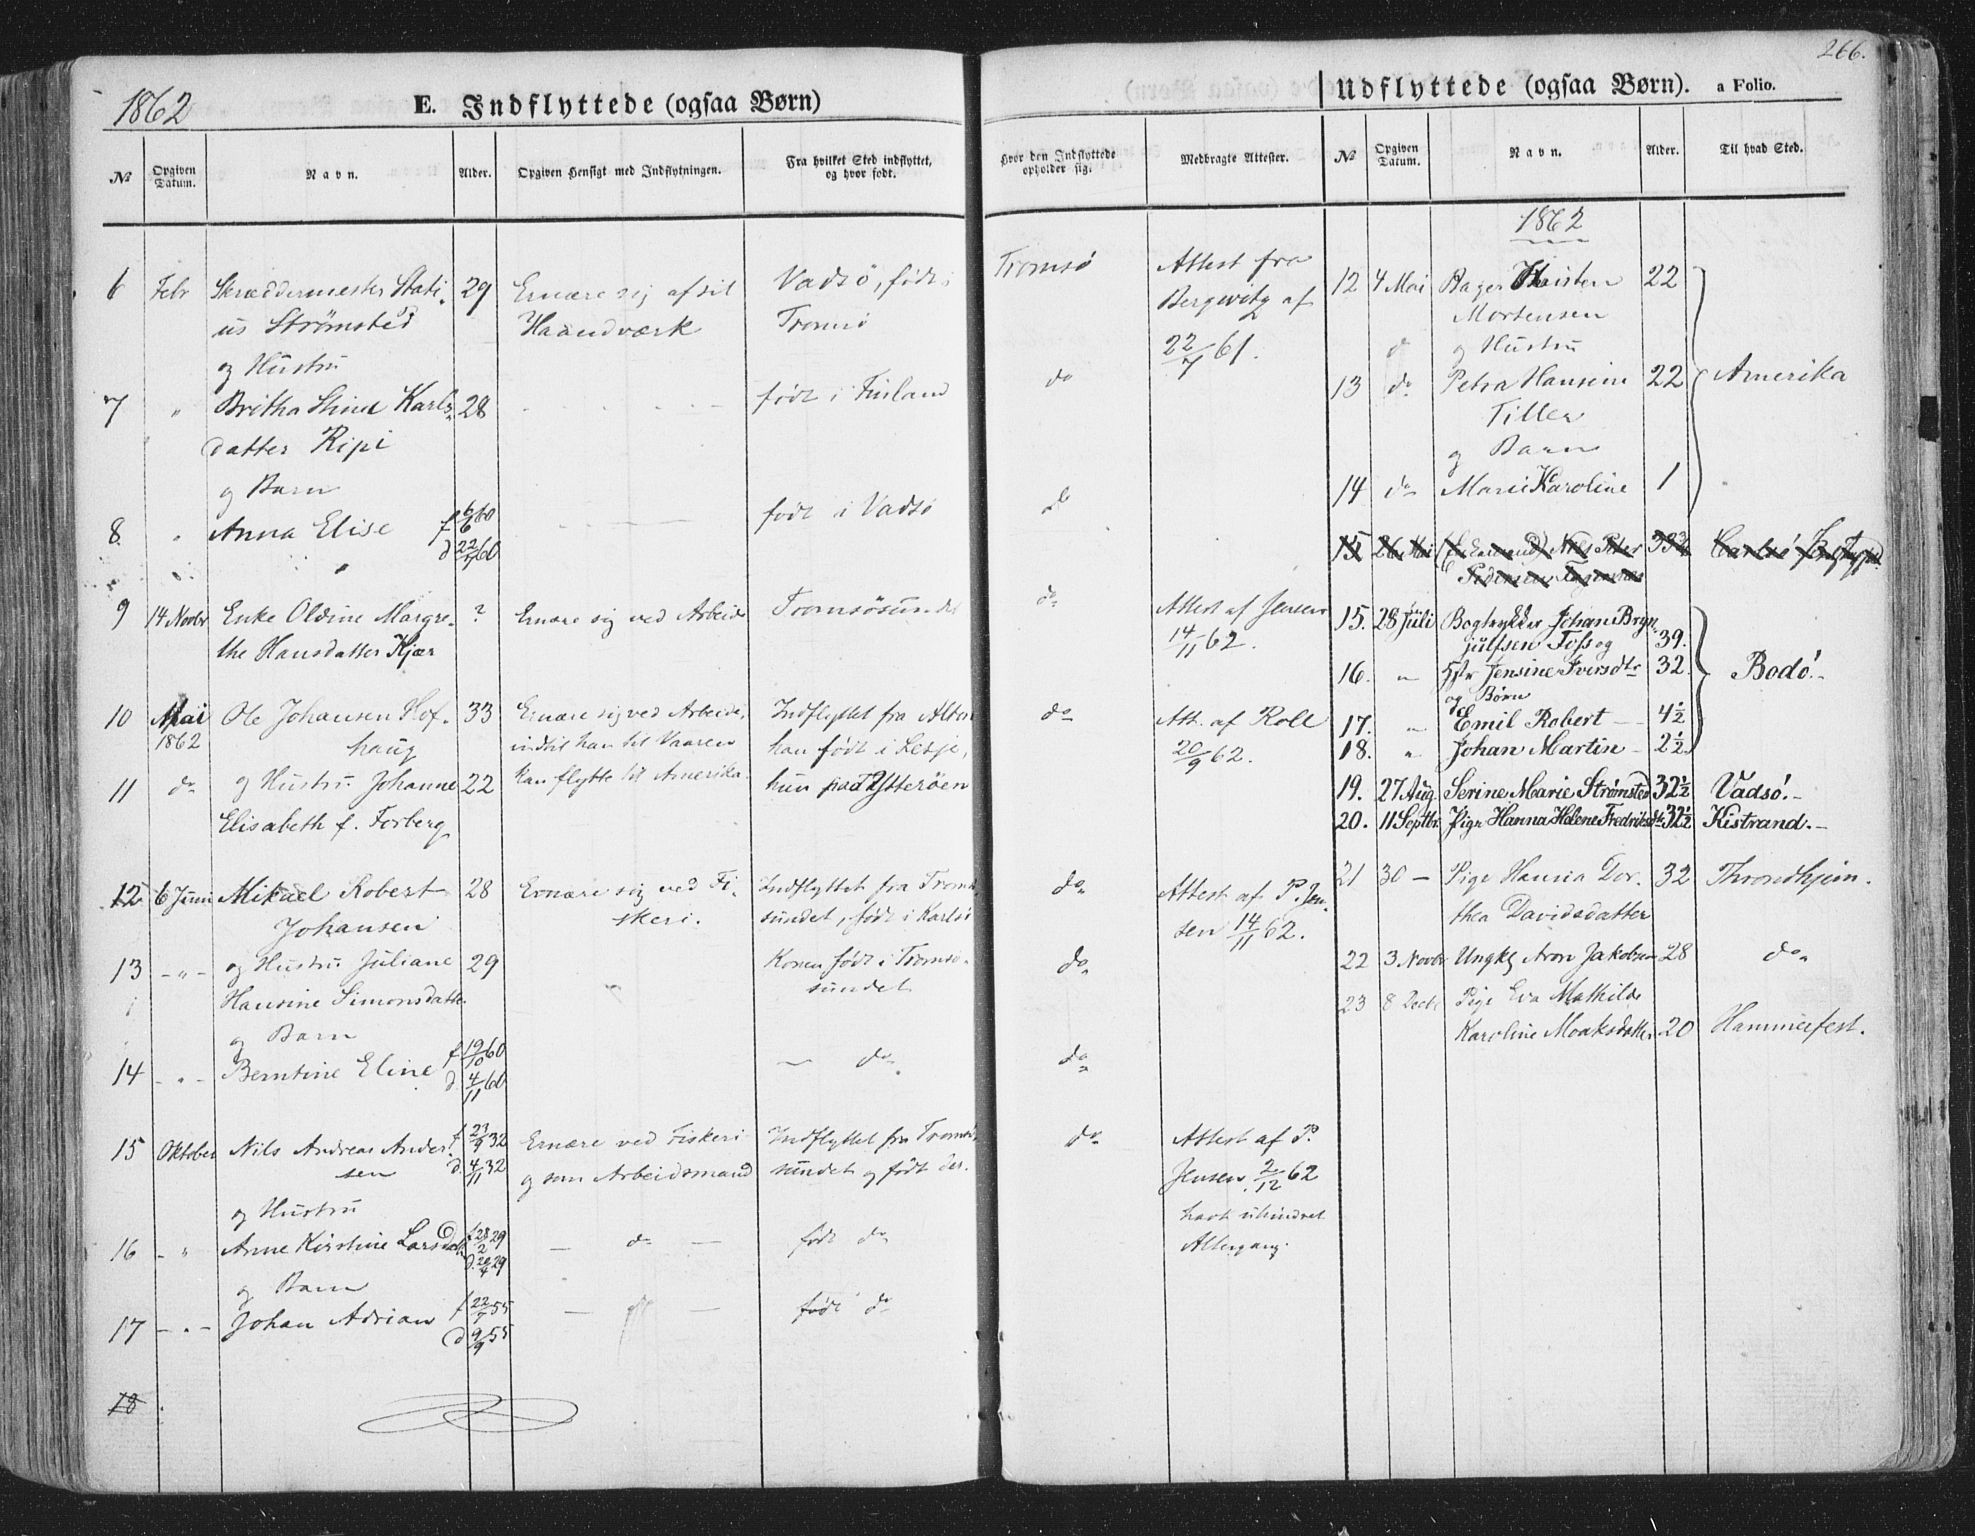 266.
1862
E. Indflyttede (ogsaa Børn)
Udflyttede (ogsaa Børn). a Folio.
No Opgiven Datum. Navn. Alder. Opgiven Hensigt med Indflytningen. Fra hvilket Sted indflyttet, og hvor født. Hvor den Indflyttede opholder sig. Medbragte Attester.
No Opgiven Datum. Navn. Alder. Til hvad Sted.
6 Febr Skræddermester Stati- 29 Ernære sig af sit Vadsö, født i Tromsö Attest fra
us Strømsted Haandværk Tromsö Bergwitz af
og Hustru 22/7 61.
7 " Britha Stina Karls- 28 født i Finland do
datter Ripi
og Barn
8. " Anna Elise f 6/6 60 født i Vadsö do
d 22/7 60
9 14 Novbr Enke Oldine Margre- ? Ernære sig ved Arbeide Tromsösundet do Attest af Jensen
the Hansdatter Kjær 14/11 62.
10 Mai Ole Johansen Hof- 33 Ernære sig ved Arbeide, Indflyttet fra Alten do Att. af Roll
1862 haug indtil han til Vaaren han født i Lesje, 20/9 62.
11 do og Hustru Johanne 22 kan flytte til Amerika. hun paa Ytterøen
Elisabeth f. Forberg
12 6 Juni Mikael Robert 28 Ernære sig ved Fi- Indflyttet fra Tromsö- do Attest af P. Jen-
Johansen skeri. sundet, født i Karlsö sen 14/11 62.
13 - " - og Hustru Juliane 29 Konen født i Tromsö- do
Hansine Simonsdatter sundet
og Barn
14 - " - Berntine Eline f 19/10 60 — do do
d. 4/11 60
15 Oktober Nils Andreas Ander- f 21/9 32 Ernære ved Fiskeri Indflyttet fra Tromsö- do Attest af P.
sen d. 4/11 32 og som Arbeidsmand sundet og født der. Jensen 2/12 62
og Hustru havt uhindret
16 - " Anne Kirstine Larsdatter f 28/2 29 — do — født do Altergang.
d. 20/4 29
og Barn
17 - " - Johan Adrian f 22/7 55 — — født do
d 9/9 55
18
1862
12 4 Mai Bager Mortensen 22
og Hustru
13 do Petra Hansine 22 Amerika
Tiller
og Barn
14 do Marie Karoline 1
15 26 Mai Nils Peter
Pedersen
15. 28 Juli Bogtrykker Johan Bryn-
julfsen Foss og 39.
16. " Hstr Jensine Iversdtr 32. Bodö.
og Børn
17. " Emil Robert 4½
18. " Johan Martin 2½
19. 27 Aug. Serine Marie Strømsted 32½ Vadsö.
20. 11 Septbr. Pige Hanna Helene Fredriksdtr 31½ Kistrand.
21 30 — Pige Hanna Dor- 32 Throndhjem.
thea Davidsdatter
22 3 Novbr Ungk. Aron Jakobsen 28 do
23 8 Decbr Pige Eva Mathilde
Karoline Moaksdatter 20 Hammerfest.